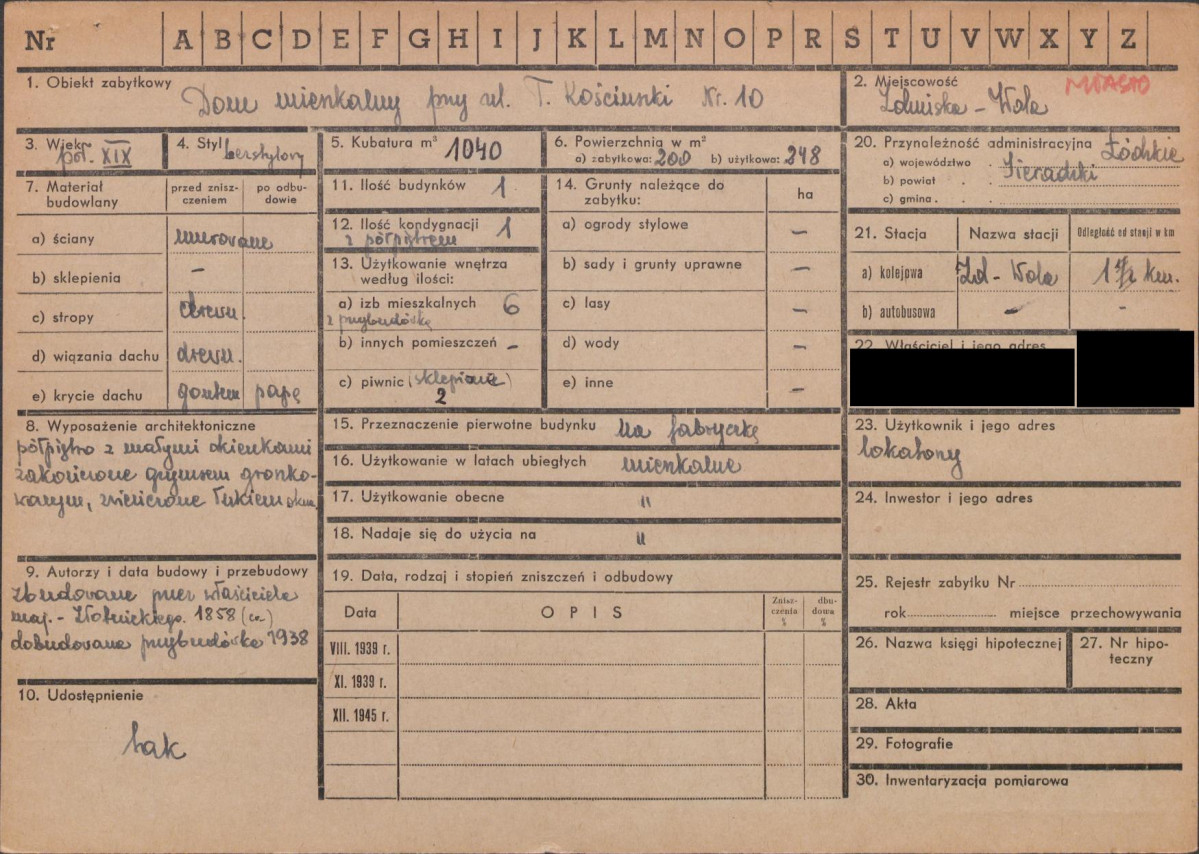 Nr A B C D E F G H I J K L M N O P R S T U V W X Y Z
1. Obiekt zabytkowy
Dom mieszkalny przy ul. T. Kościuszki Nr. 10
2. Miejscowość
MIASTO
Zduńska-Wola
3. Wiek
poł. XIX
4. Styl
bezstylowy
5. Kubatura m³ 1040
6. Powierzchnia w m²
a) zabytkowa: 200 b) użytkowa: 248
20. Przynależność administracyjna
a) województwo Łódzkie
b) powiat . . Sieradzki
c) gmina . .
7. Materiał budowlany
przed zniszczeniem
po odbudowie
a) ściany murowane
b) sklepienia –
c) stropy drewn.
d) wiązania dachu drewn.
e) krycie dachu gontem papą
11. Ilość budynków 1
12. Ilość kondygnacji 1
z półpiętrem
13. Użytkowanie wnętrza
według ilości:
a) izb mieszkalnych 6
z przybudówką
b) innych pomieszczeń –
c) piwnic (sklepione)
2
14. Grunty należące do
zabytku:
ha
a) ogrody stylowe –
b) sady i grunty uprawne –
c) lasy –
d) wody –
e) inne –
21. Stacja Nazwa stacji Odległość od stacji w km
a) kolejowa Zd-Wola 1 1/2 km.
b) autobusowa – –
22. Właściciel i jego adres
8. Wyposażenie architektoniczne
półpiętro z małymi okienkami
zakończone gzymsem
15. Przeznaczenie pierwotne budynku na fabryczkę
16. Użytkowanie w latach ubiegłych mieszkalne
17. Użytkowanie obecne "
18. Nadaje się do użycia na "
23. Użytkownik i jego adres
lokatorzy
24. Inwestor i jego adres
9. Autorzy i data budowy i przebudowy
zbudowane przez właściciela
maj. - Złotnickiego. 1858 (ca)
dobudowana przybudówka 1938
10. Udostępnienie
19. Data, rodzaj i stopień zniszczeń i odbudowy
Data OPIS Zniszczenia % dbudowa %
VIII. 1939 r.
XI. 1939 r.
XII. 1945 r.
25. Rejestr zabytku Nr
rok miejsce przechowywania
26. Nazwa księgi hipotecznej
27. Nr hipoteczny
28. Akta
29. Fotografie
30. Inwentaryzacja pomiarowa